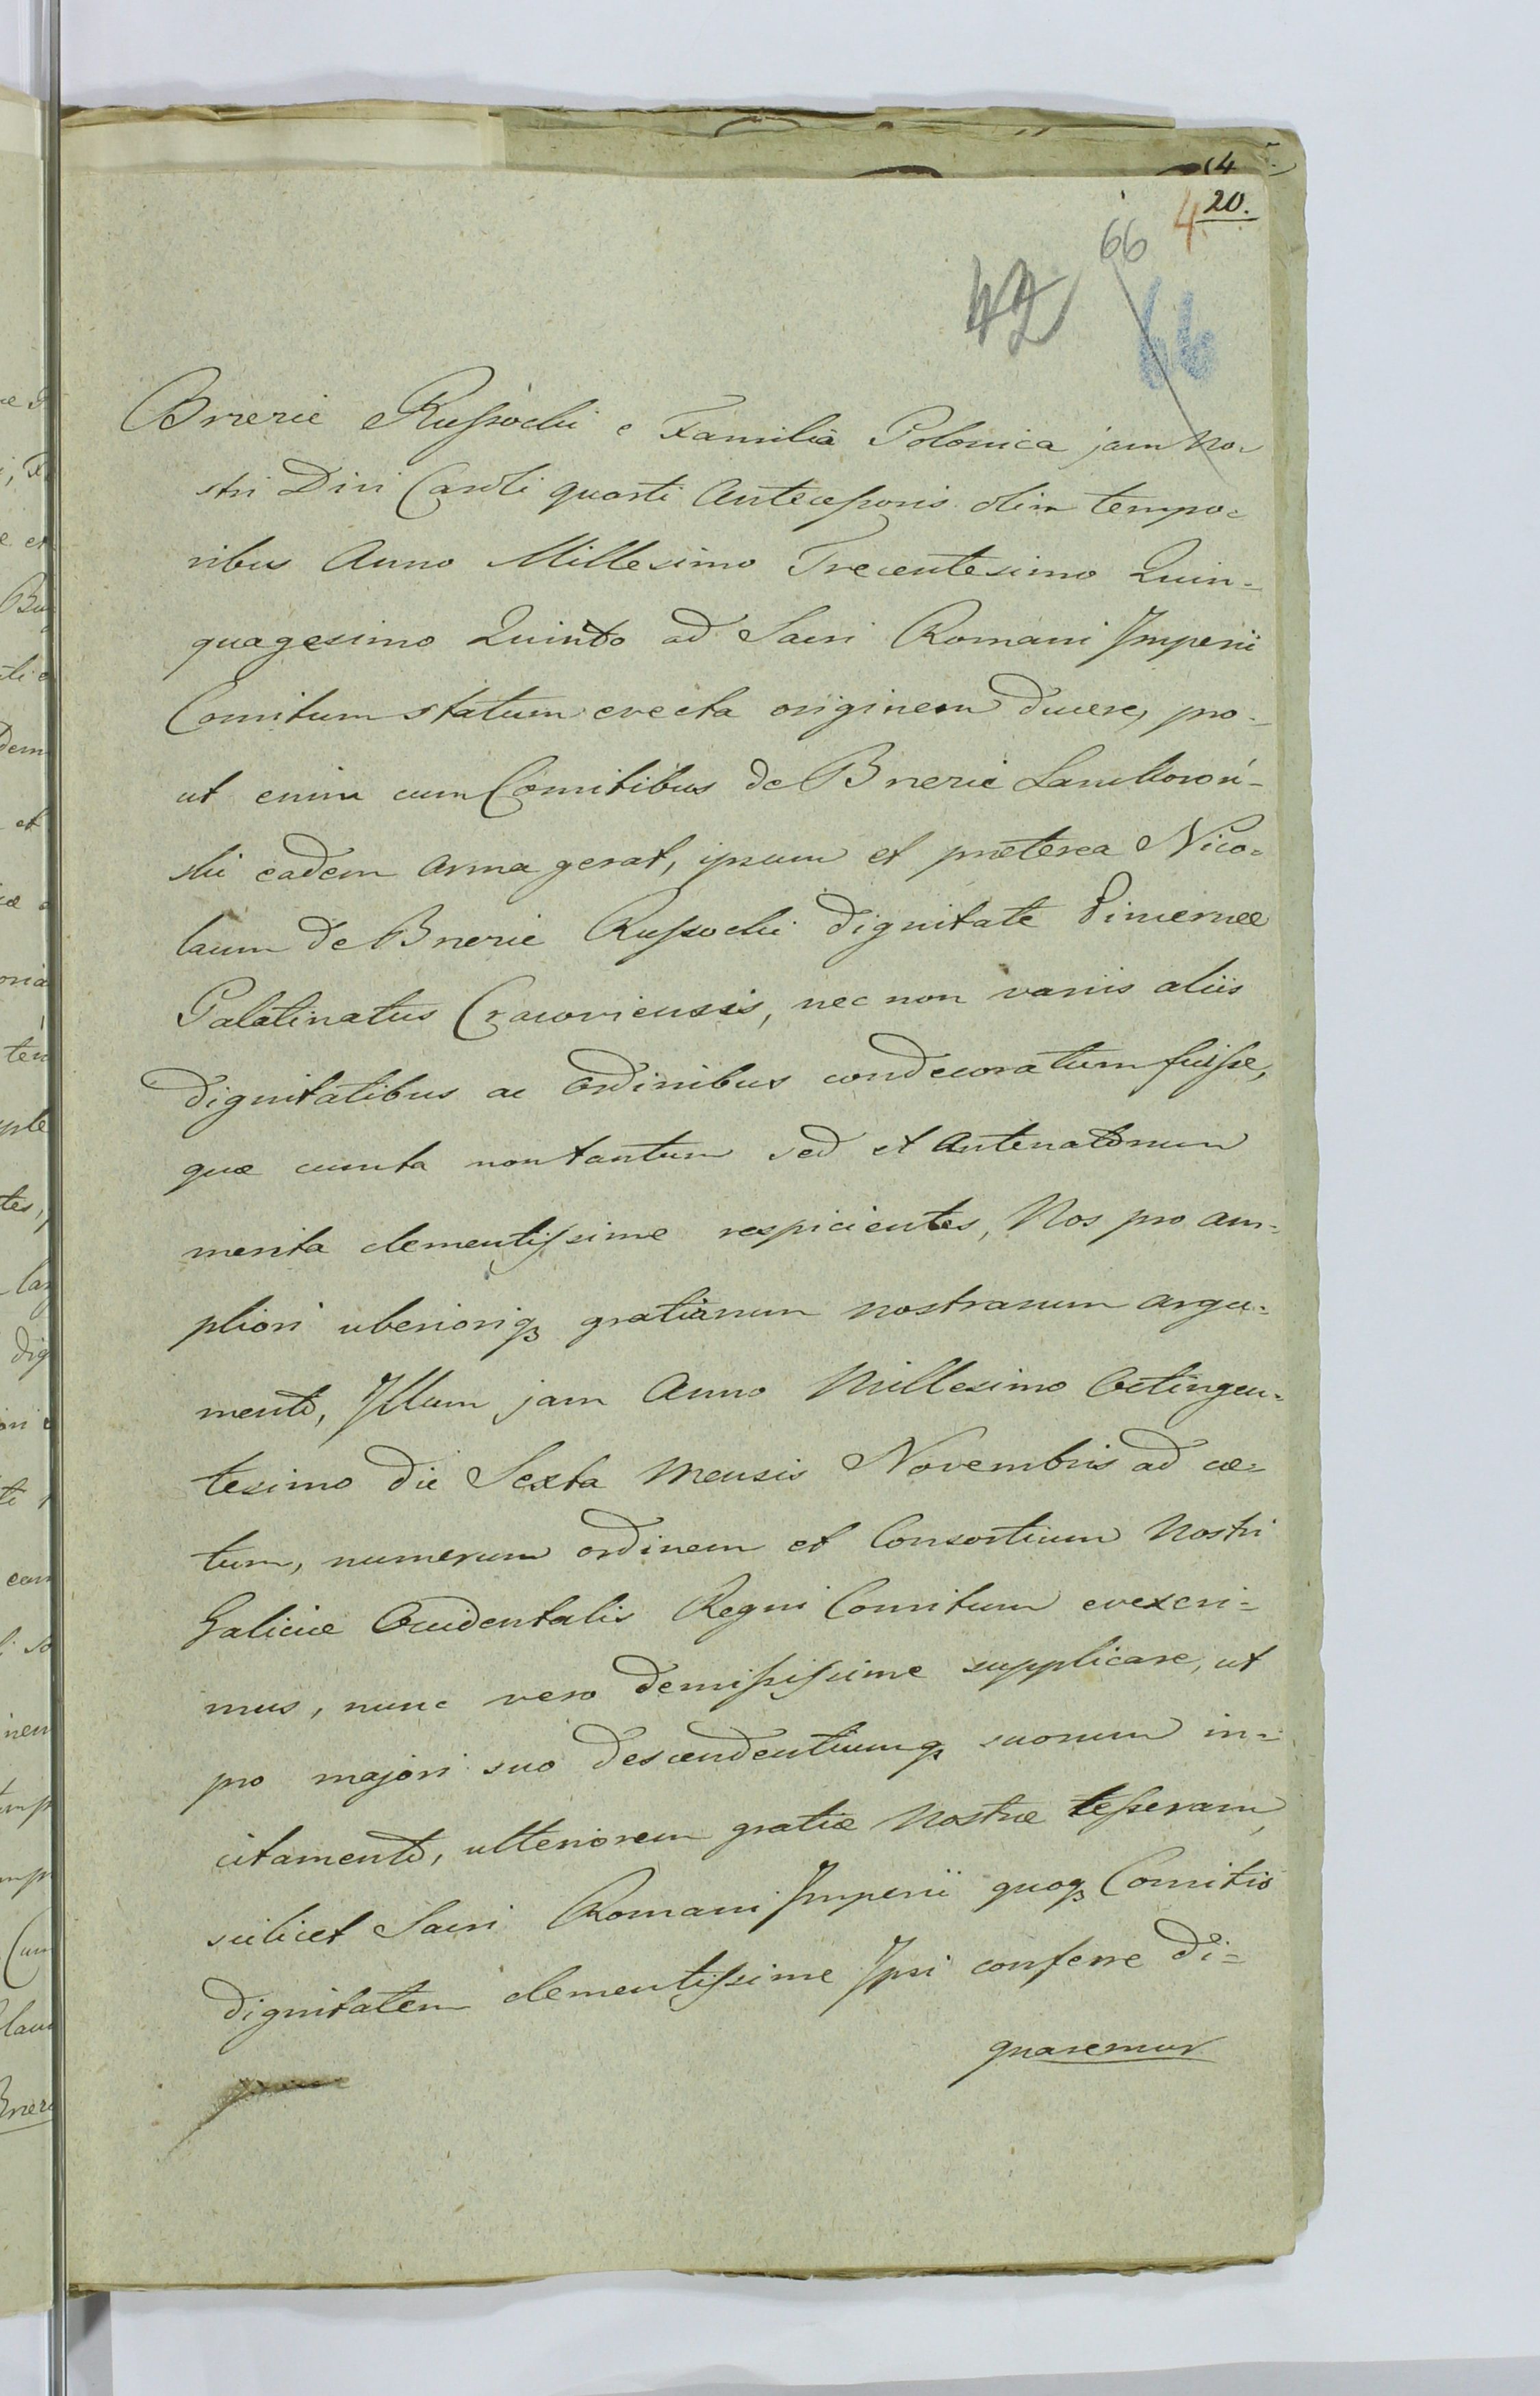 (4
20.
4
66
42
66
Brzezie Russocki e Familia Polonica jam No=
stri Divi Caroli quarti Antecessoris olim tempo=
ribus Anno Millesimo Trecentesimo Quin=
quagesimo Quinto ad Sacri Romani Imperii
Comitum statum evecta originem ducere, pro=
ut enim cum Comitibus de Brzezie Lanckoroń=
ski eadem arma gerat, ipsum et præterea Nico=
laum de Brzezie Russocki dignitate Pincernæ
Palatinatus Cracoviensis, nec non variis aliis
dignitatibus ac Ordinibus condecoratum fuisse,
quæ cuncta non tantum sed et Antenatorum
merita clementissime respicientes, Nos pro am=
pliori uberioriq3 gratiarum nostrarum argu=
mento, Illum jam Anno Millesimo Octingen=
tesimo die Sexta Mensis Novembris ad cæ=
tum, numerum ordinem et Consortium Nostri
Galiciæ Occidentalis Regni Comitum evexeri=
mus, nunc vero demississime supplicare, ut
pro majori suo descendentiumq3 suorum in=
citamento, ulteriorem gratiæ Nostræ tesseram,
scilicet Sacri Romani Imperii quoq3 Comitis
dignitatem clementissime Ipsi conferre di=
gnaremur